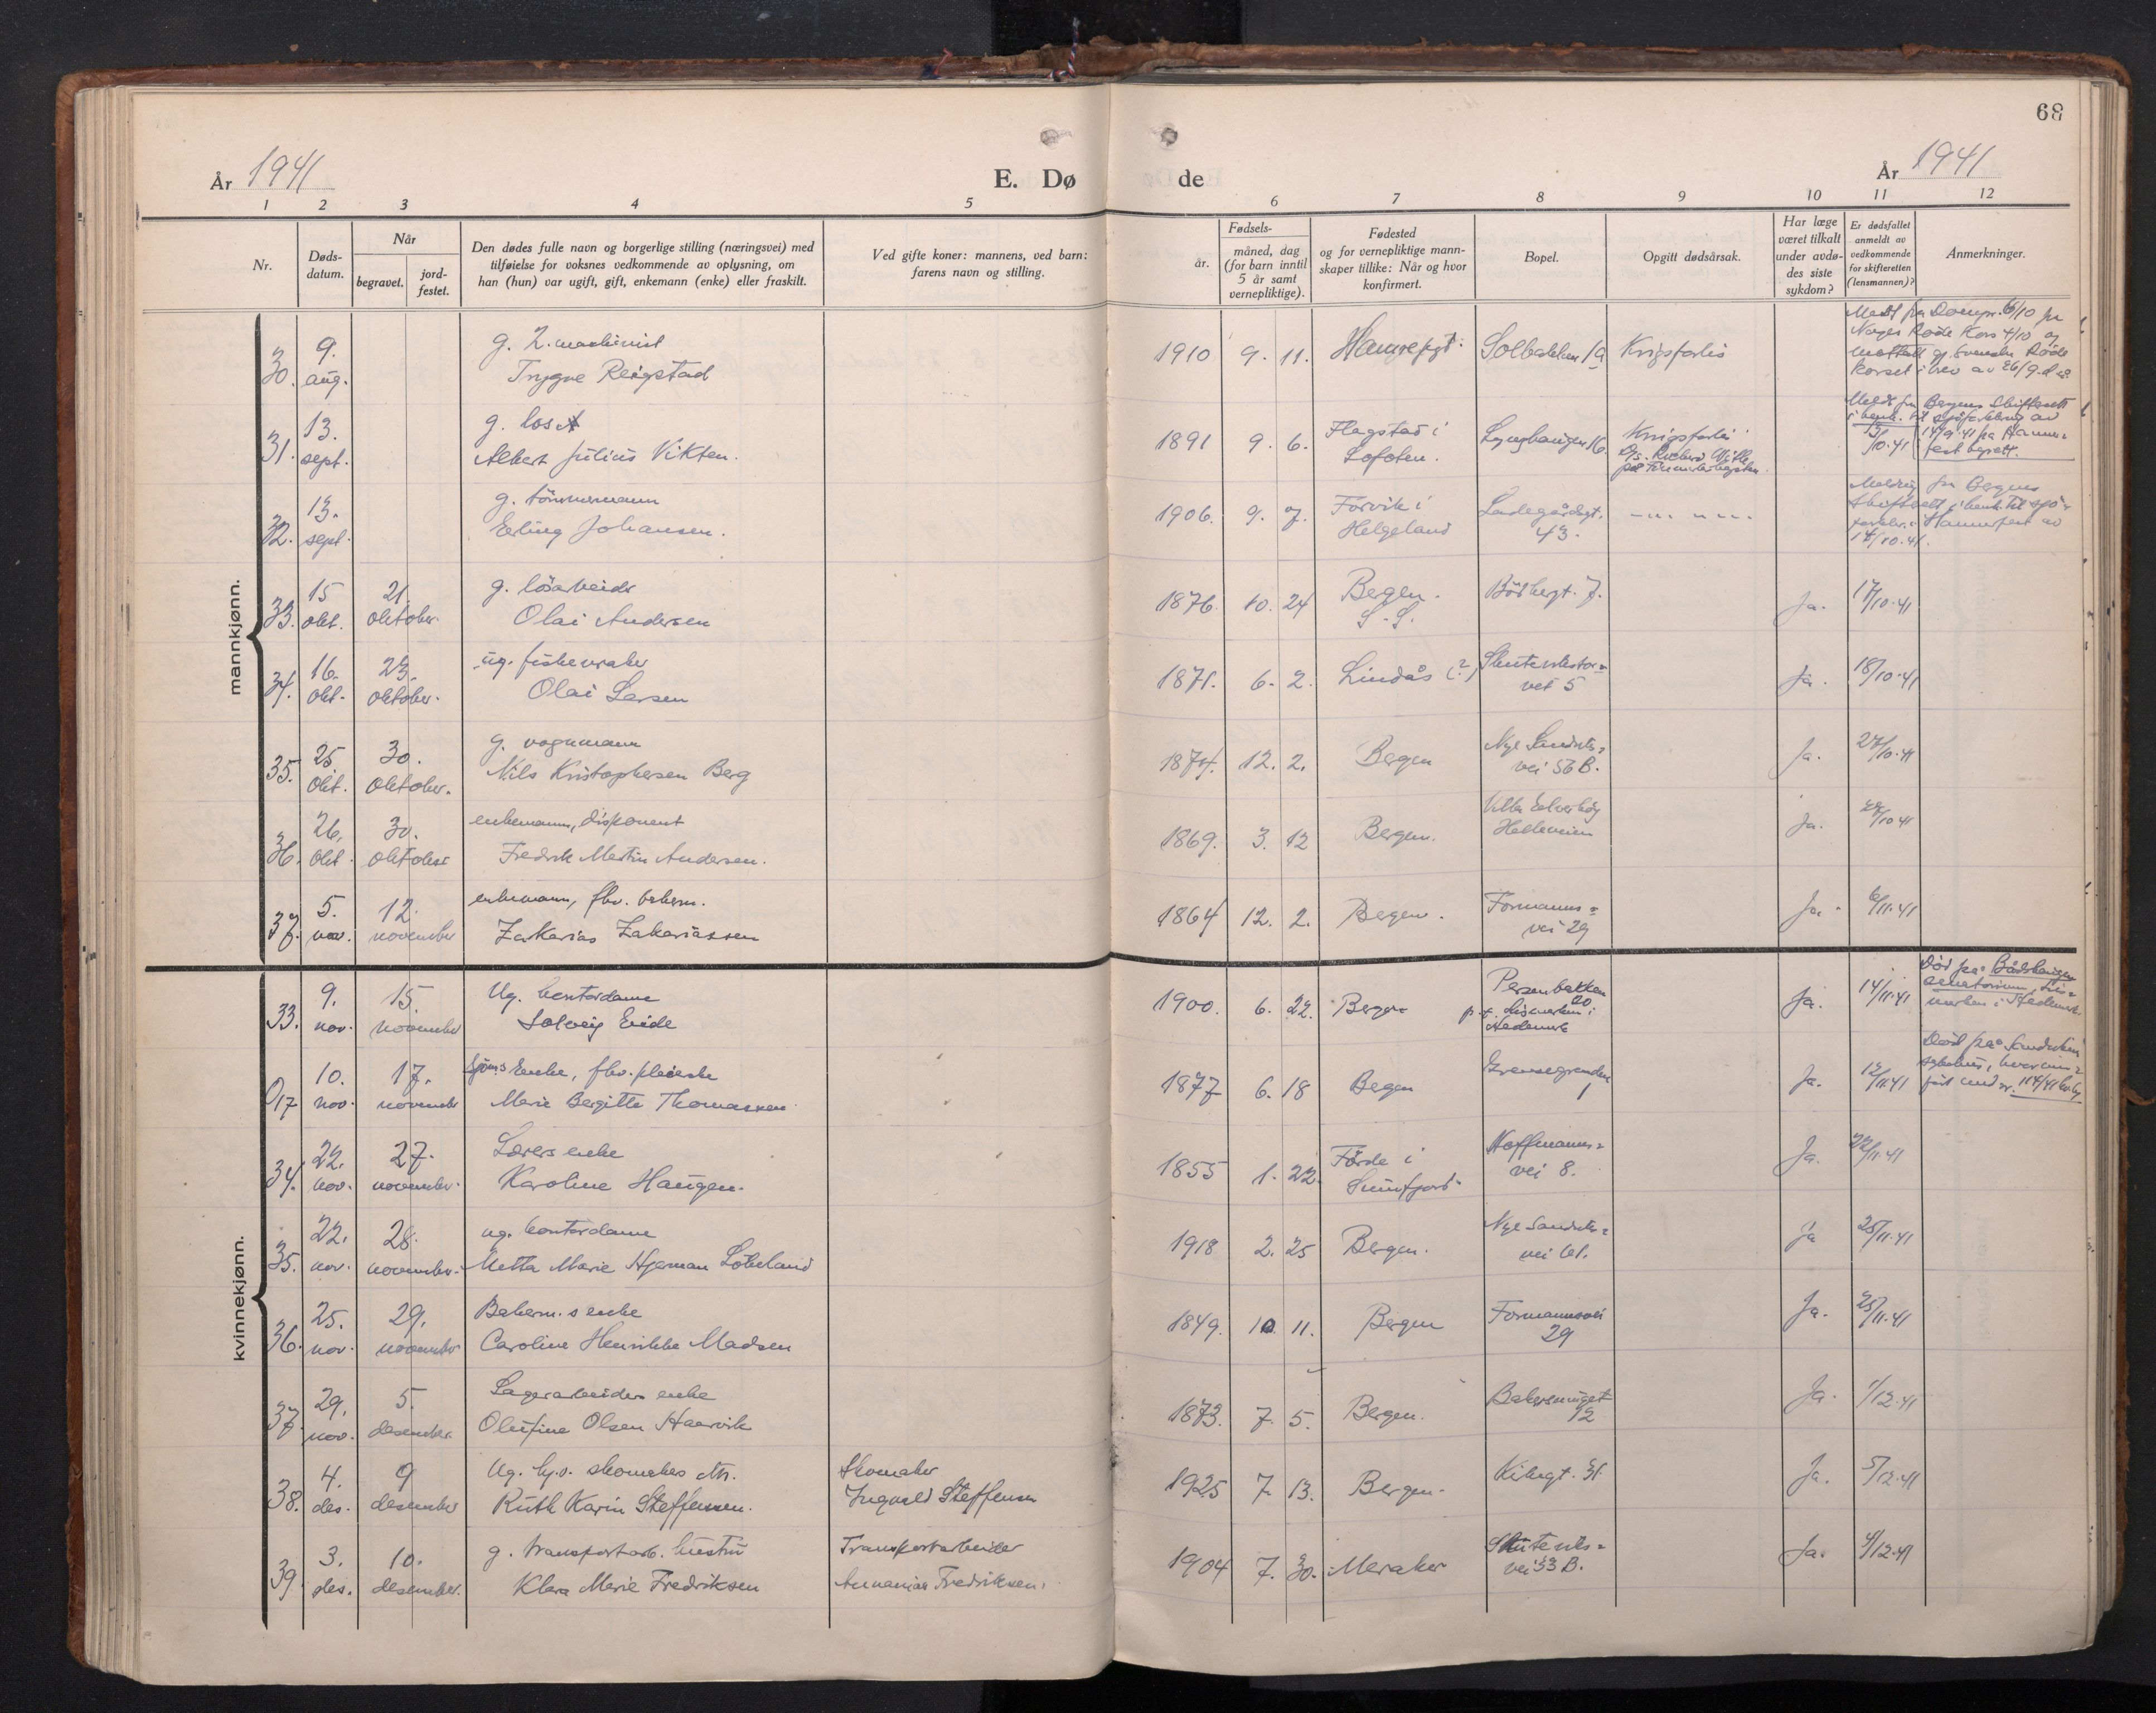 68
År 1941
E. Dø de
År 1941
1 2 3 4 5 6 7 8 9 10 11 12
Nr.
Døds-
datum.
Når
begravet.
jord-
festet.
Den dødes fulle navn og borgerlige stilling (næringsvei) med
tilføielse for voksnes vedkommende av oplysning, om
han (hun) var ugift, gift, enkemann (enke) eller fraskilt.
Ved gifte koner: mannens, ved barn:
farens navn og stilling.
Fødsels-
år.
måned, dag
(for barn inntil
5 år samt
vernepliktige).
Fødested
og for vernepliktige mann-
skaper tillike: Når og hvor
konfirmert.
Bopel.
Opgitt dødsårsak.
Har læge
været tilkalt
under avdø-
des siste
sykdom?
Er dødsfallet
anmeldt av
vedkommende
for skifteretten
(lensmannen)?
Anmerkninger.
mannkjønn.
30. 9. aug. g. 2. maskinist
Trygve Reigstad
1910 9. 11. Krigsforlis
Meldt fra Dompr. 6/10 fra
Norges Røde Kors 4/10 og
mottatt gj. Svenska Røde
Korset i brev av 26/9. d.å.
31. 13. sept. g. los
Albert Julius Vikten.
1891 9. 6. Flagstad i
Lofoten. Lynghaugen 16. Krigsforlis
Meldt fra Bergens Skifterett
i henh. til sjøforklaring av
32. 13. sept. g. tömmermann
Erling Johansen.
1906. 9. 7. Forvik i
Helgeland
Ladegårdsgt.
43.
Melding fra Bergens
Skifterett i henh. til sjö-
forklar. i Hammerfest av
14/10.41.
33. 15 okt. 21. oktober. g. lösarbeider
Olai Andersen
1876. 10. 24 Bergen.
S. S.
Ja. 17/10.41
34. 16. okt. 23. oktober. ug. fiskevraker
Olai Larsen
1871. 6. 2. Lindås (?) Skutevikstor=
vet 5
Ja. 18/10.41
35. 25. okt. 30. oktober. g. vognmann
Nils Kristophersen Berg
1874. 12. 2. Bergen Nye Sandviks=
vei 56 B.
Ja. 27/10.41
36. 26. okt. 30. oktober enkemann, disponent
Fredrik Martin Andersen.
1869. 3. 12 Bergen. Villa Elverhöy
Helleveien
Ja. 28/10 41
37. 5. nov. 12. november enkemann, fhv. bakerm.
Zakarias Zakariassen
1864 12. 2. Bergen. Formanns=
vei 29
Ja. 6/11.41
kvinnekjønn.
33. 9. nov. 15. november Ug. kontordame
Solveig Eide
1900. 6. 22. Bergen Persenbakken
20
Hedemark
Ja. 14/11.41
Död på
sanatorium,
i Hedemark.
017 10. nov. 17. november Sjöm.s Enke, fhv. pleierske
Marie Bergitte Thomassen
1877 6. 18 Bergen Grensegrenden
1
Ja. 12/11.41
Död på Sandviken
sykehus, hvor inn=
ført und nr. 114/41
34. 22. nov. 27. november. Lærers enke
Karoline Haugen.
1855 1. 22. Förde i
Sunnfjord. Hoffmanns=
vei 8.
Ja. 22/11.41
35. 22. nov. 28. november. ug. kontordame
Metta Marie Hjerman Lökeland
1918 2. 25 Bergen. Nye Sandviks=
vei 61.
ja 25/11.41
36. 25. nov. 29. november Bakerm.s enke
Caroline Henrikke Madsen
1849. 10. 11. Bergen Formannsvei
29
Ja. 25/11.41
37. 29. nov. 5. desember. Lagerarbeiders enke
Olufine Olsen Haarvik
1873. 7. 5. Bergen.
12
Ja. 1/12.41
38. 4. des. 9 desember Ug. hj.v. skomakers dtr.
Ruth Karin Steffensen.
Skomaker
Ingvald Steffensen
1925 7. 13. Bergen.
Ja. 5/12.41
39. 3. des. 10. desember. g. transportarb. hustru
Klara Marie Fredriksen
Transportarbeider
Annanias Fredriksen.
1904 7. 30. Meraker Skuteviks=
vei 33 B.
Ja. 4/12.41